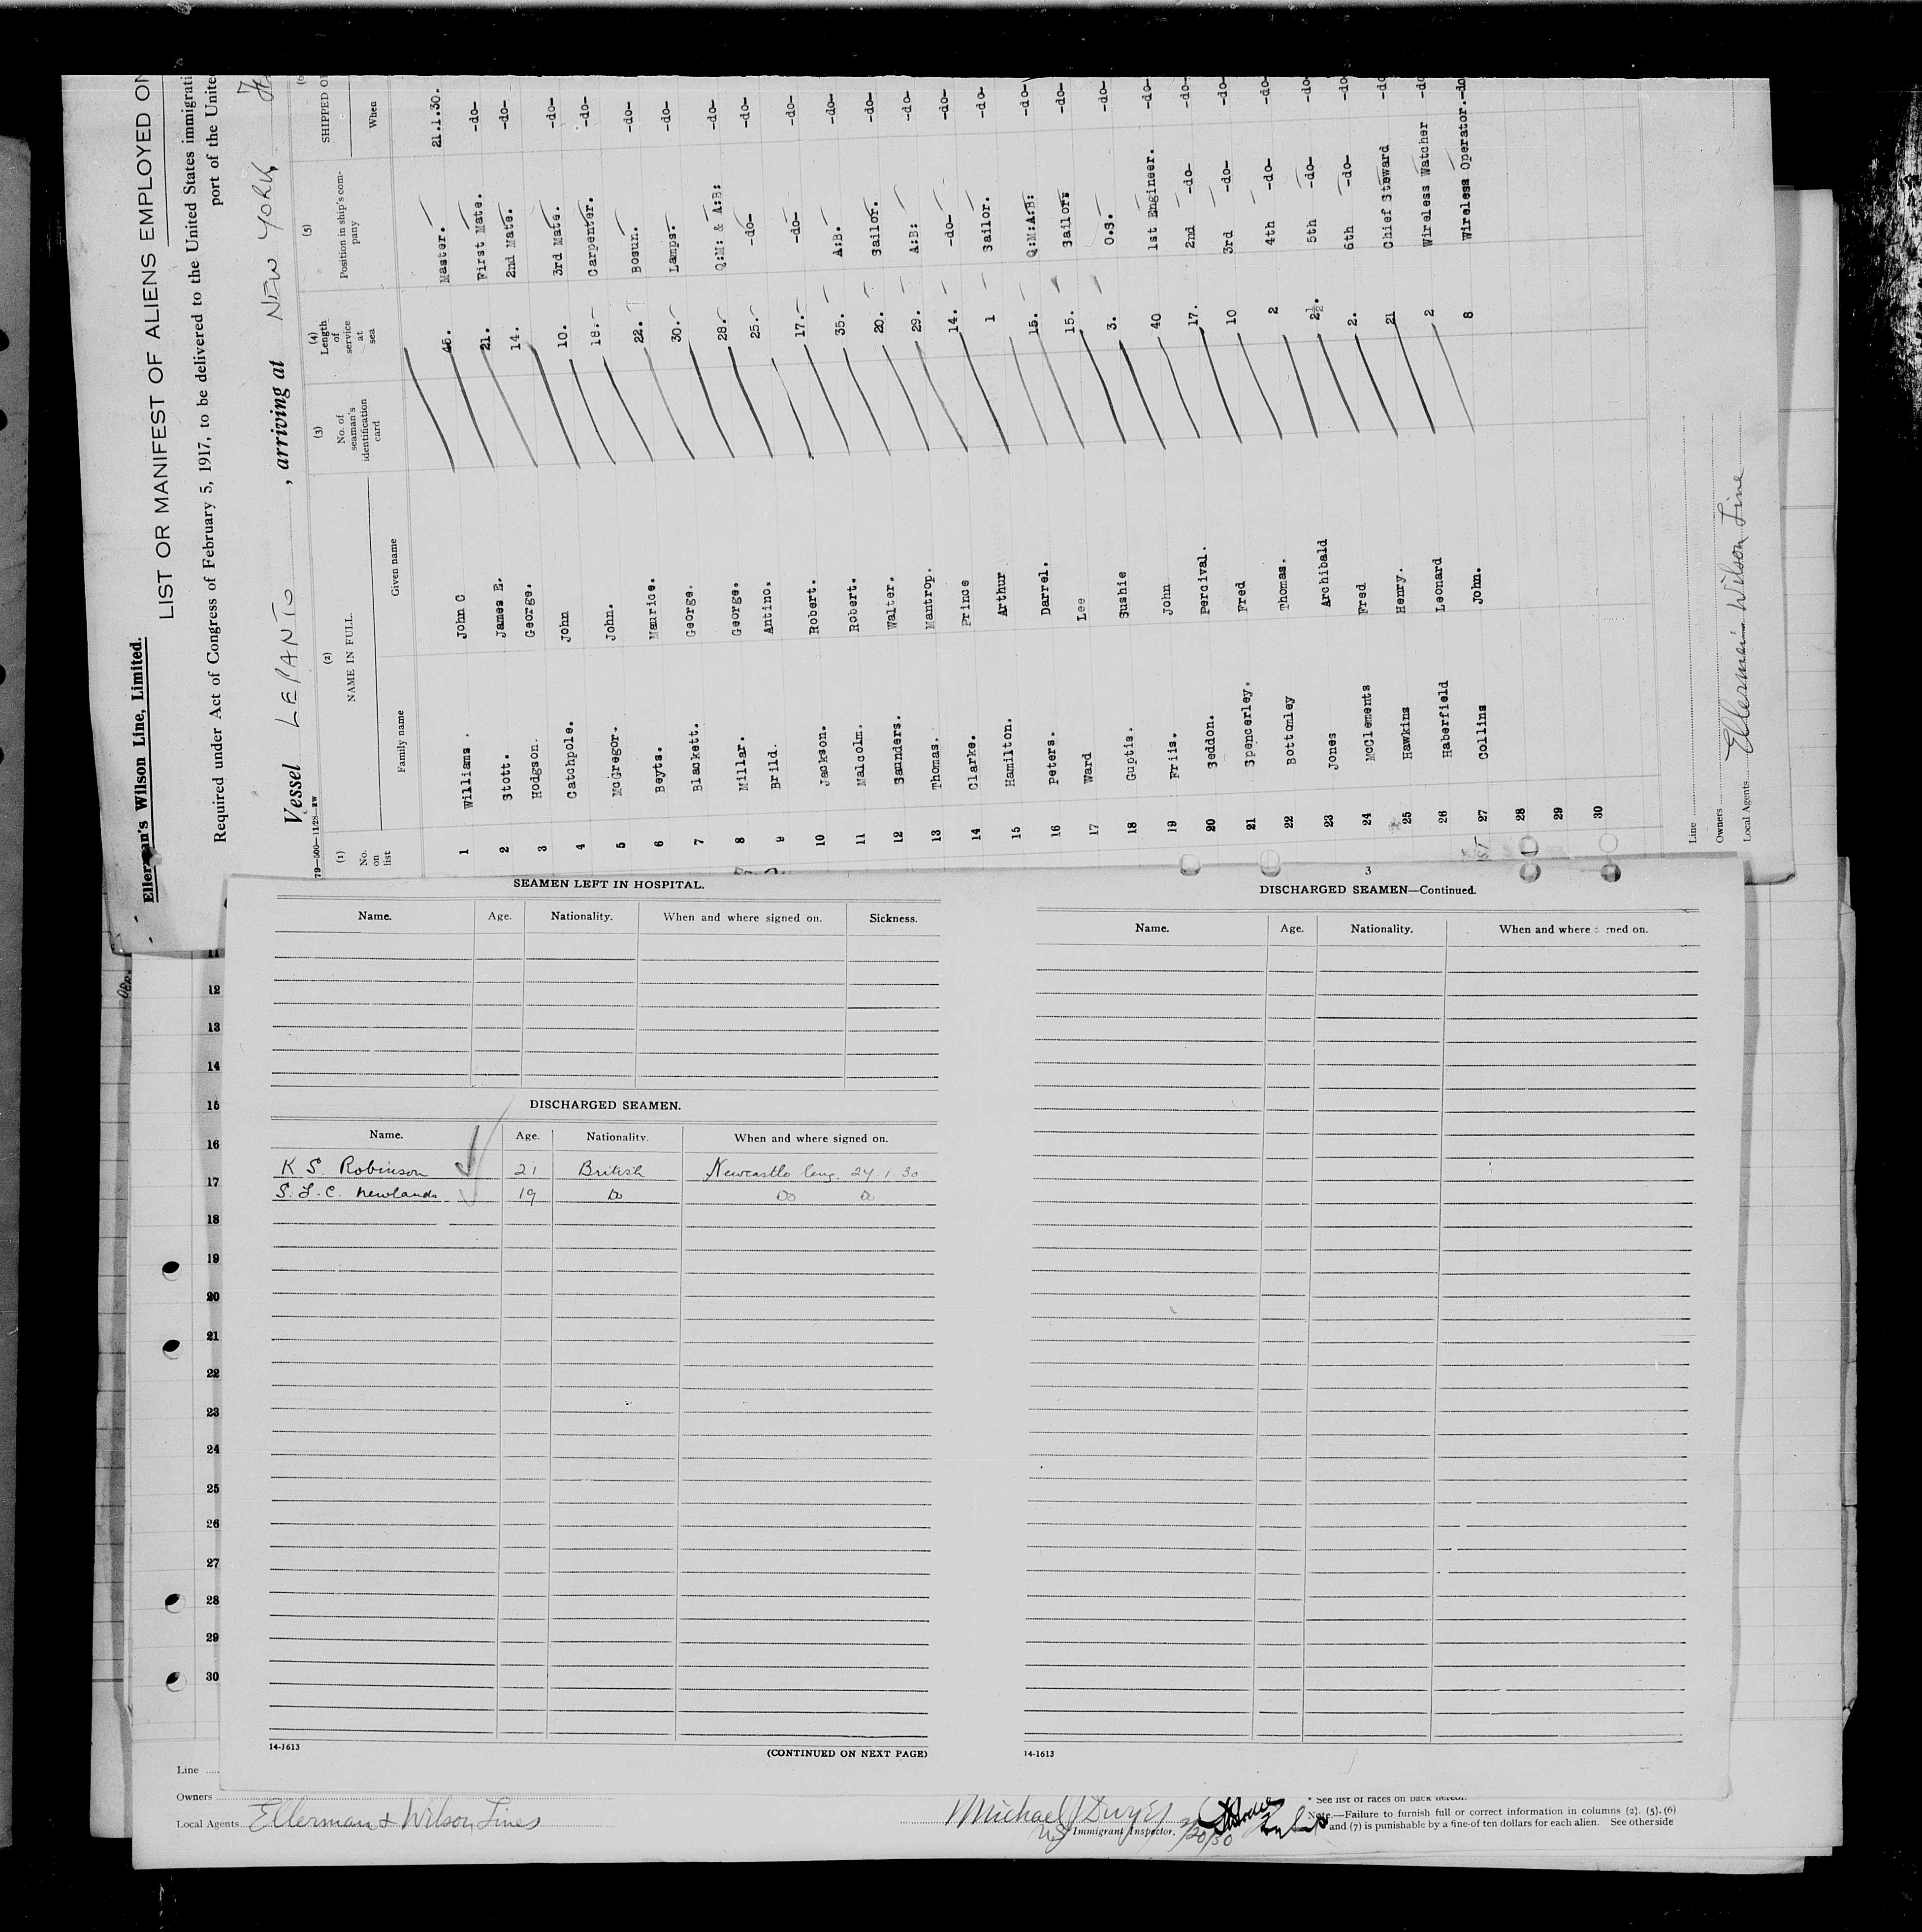 Ellerman's Wilson Line, Limited.
LIST OR MANIFEST OF ALIENS EMPLOYED ON
Required under Act of Congress of February 5, 1917, to be delivered to the United States immigrati
port of the Unite
Vessel LEPANTO, arriving at NEW YORK,
79—500—11/28—RW
(1) No. on list
(2) NAME IN FULL
Family name Given name
(3) No. of seaman's identification card
(4) Length of service at sea
(5) Position in ship's company
(6) SHIPPED OR
When
1 Williams. John C 45. Master. 21.1.30.
2 Stott. James E. 21. First Mate. -do-
3 Hodgson. George. 14. 2nd Mate. -do-
4 Catchpole. John 10. 3rd Mate. -do-
5 McGregor. John. 18. Carpenter. -do-
6 Beyts. Maurice. 22. Bosun. -do-
7 Blackett. George. 30. Lamps. -do-
8 Millar. George. 28. Q:M: & A:B: -do-
9 Brild. Antino. 25. -do- -do-
10 Jackson. Robert. 17. -do- -do-
11 Malcolm. Robert. 35. A:B. -do-
12 Saunders. Walter. 20. Sailor. -do-
13 Thomas. Mantrop. 29. A:B: -do-
14 Clarke. Prince 14. -do- -do-
15 Hamilton. Arthur 1 Sailor. -do-
16 Peters. Darrel. 15. Q:M:A:B: -do-
17 Ward Lee 15. Sailor: -do-
18 Guptis. Gushie 3. O.S. -do-
19 Friis. John 40 1st Engineer. -do-
20 Seddon. Percival. 17. 2nd -do- -do-
21 Spencerley. Fred 10 3rd -do- -do-
22 Bottomley Thomas. 2 4th -do- -do-
23 Jones Archibald 2½. 5th -do- -do-
24 McClements Fred 2. 6th -do- -do-
25 Hawkins Henry. 21 Chief Steward -do-
26 Haberfield Leonard 2 Wireless Watcher -do-
27 Collins John. 8 Wireless Operator. -do-
28
29
30
Line
Owners
Local Agents Ellerman's Wilson Line
SEAMEN LEFT IN HOSPITAL.
Name. Age. Nationality. When and where signed on. Sickness.
DISCHARGED SEAMEN.
Name. Age. Nationality. When and where signed on.
K S. Robinson 21 British Newcastle Eng. 24.1.30
S. L. C. Newlands 19 Do Do Do
14-1613
(CONTINUED ON NEXT PAGE)
3
DISCHARGED SEAMEN—Continued.
Name. Age. Nationality. When and where signed on.
14-1613
11
12
13
14
15
16
17
18
19
20
21
22
23
24
25
26
27
28
29
30
Line
Owners
Local Agents Ellerman & Wilson Lines
Michael J Dwyer
Immigrant Inspector.
* See list of races on back hereof.
Note.—Failure to furnish full or correct information in columns (2), (5), (6)
and (7) is punishable by a fine of ten dollars for each alien. See other side